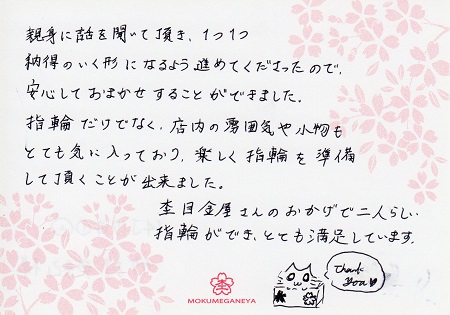 親身に話を聞いて頂き、1つ1つ
納得のいく形になるよう進めてくださったので、
安心しておまかせすることができました。
指輪だけでなく、店内の雰囲気や小物も
とても気に入っており、楽しく指輪を準備
して頂くことが出来ました。
杢目金屋さんのおかげで二人らしい
指輪ができ、とても満足しています。
Thank
you
MOKUMEGANEYA